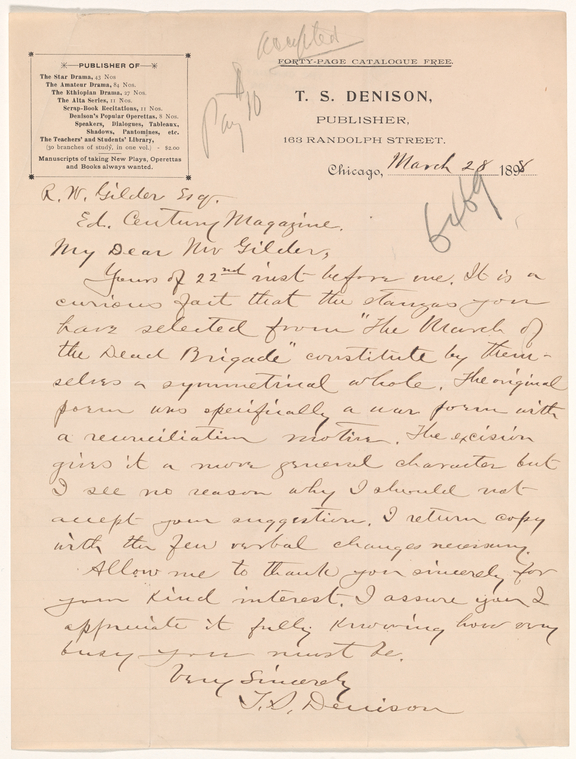 accepted
Pay $10
PUBLISHER OF
The Star Drama, 43 Nos
The Amateur Drama, 84 Nos.
The Ethiopian Drama, 27 Nos.
The Alta Series, 11 Nos.
Scrap-Book Recitations, 11 Nos.
Denison's Popular Operettas, 8 Nos.
Speakers, Dialogues, Tableaux,
Shadows, Pantomines, etc.
The Teachers' and Students' Library,
(30 branches of study, in one vol.) - $2.00
Manuscripts of taking New Plays, Operettas
and Books always wanted.
FORTY-PAGE CATALOGUE FREE.
T. S. DENISON,
PUBLISHER,
163 RANDOLPH STREET.
Chicago, March 28 1898
6469
R. W. Gilder Esq.
Ed. Century Magazine.
My Dear Mr Gilder,
Yours of 22nd inst before me. It is a
curious fact that the stanzas you
have selected from "The March of
the Dead Brigade" constitute by them-
selves a symmetrical whole. The original
poem was specifically a war poem with
a reconciliation motive. The excision
gives it a more general character but
I see no reason why I should not
accept your suggestion. I return copy
with the few verbal changes necessary.
Allow me to thank you sincerely for
your kind interest. I assure you I
appreciate it fully knowing how very
busy you must be.
Very Sincerely
T. S. Denison